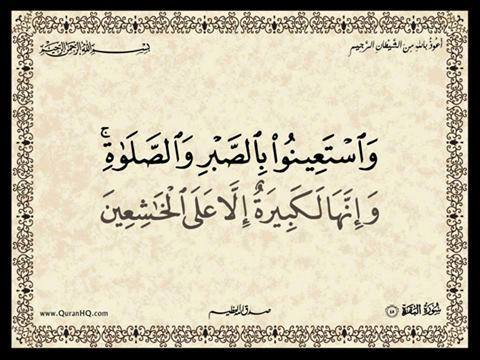 أعوذ بالله من الشيطان الرجيم
بسم الله الرحمن الرحيم
وَٱسْتَعِينُوا۟ بِٱلصَّبْرِ وَٱلصَّلَوٰةِ ۚ
وَإِنَّهَا لَكَبِيرَةٌ إِلَّا عَلَى ٱلْخَـٰشِعِينَ
سُورَةُ البَقَرَة ٤٥
صدق الله العظيم
www.QuranHQ.com